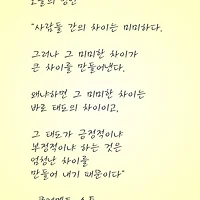 오늘의 명언
"사람들 간의 차이는 미미하다.
그러나 그 미미한 차이가
큰 차이를 만들어낸다.
왜냐하면 그 미미한 차이는
바로 태도의 차이이고,
그 태도가 긍정적이냐
부정적이냐 하는 것은
엄청난 차이를
만들어 내기 때문이다"